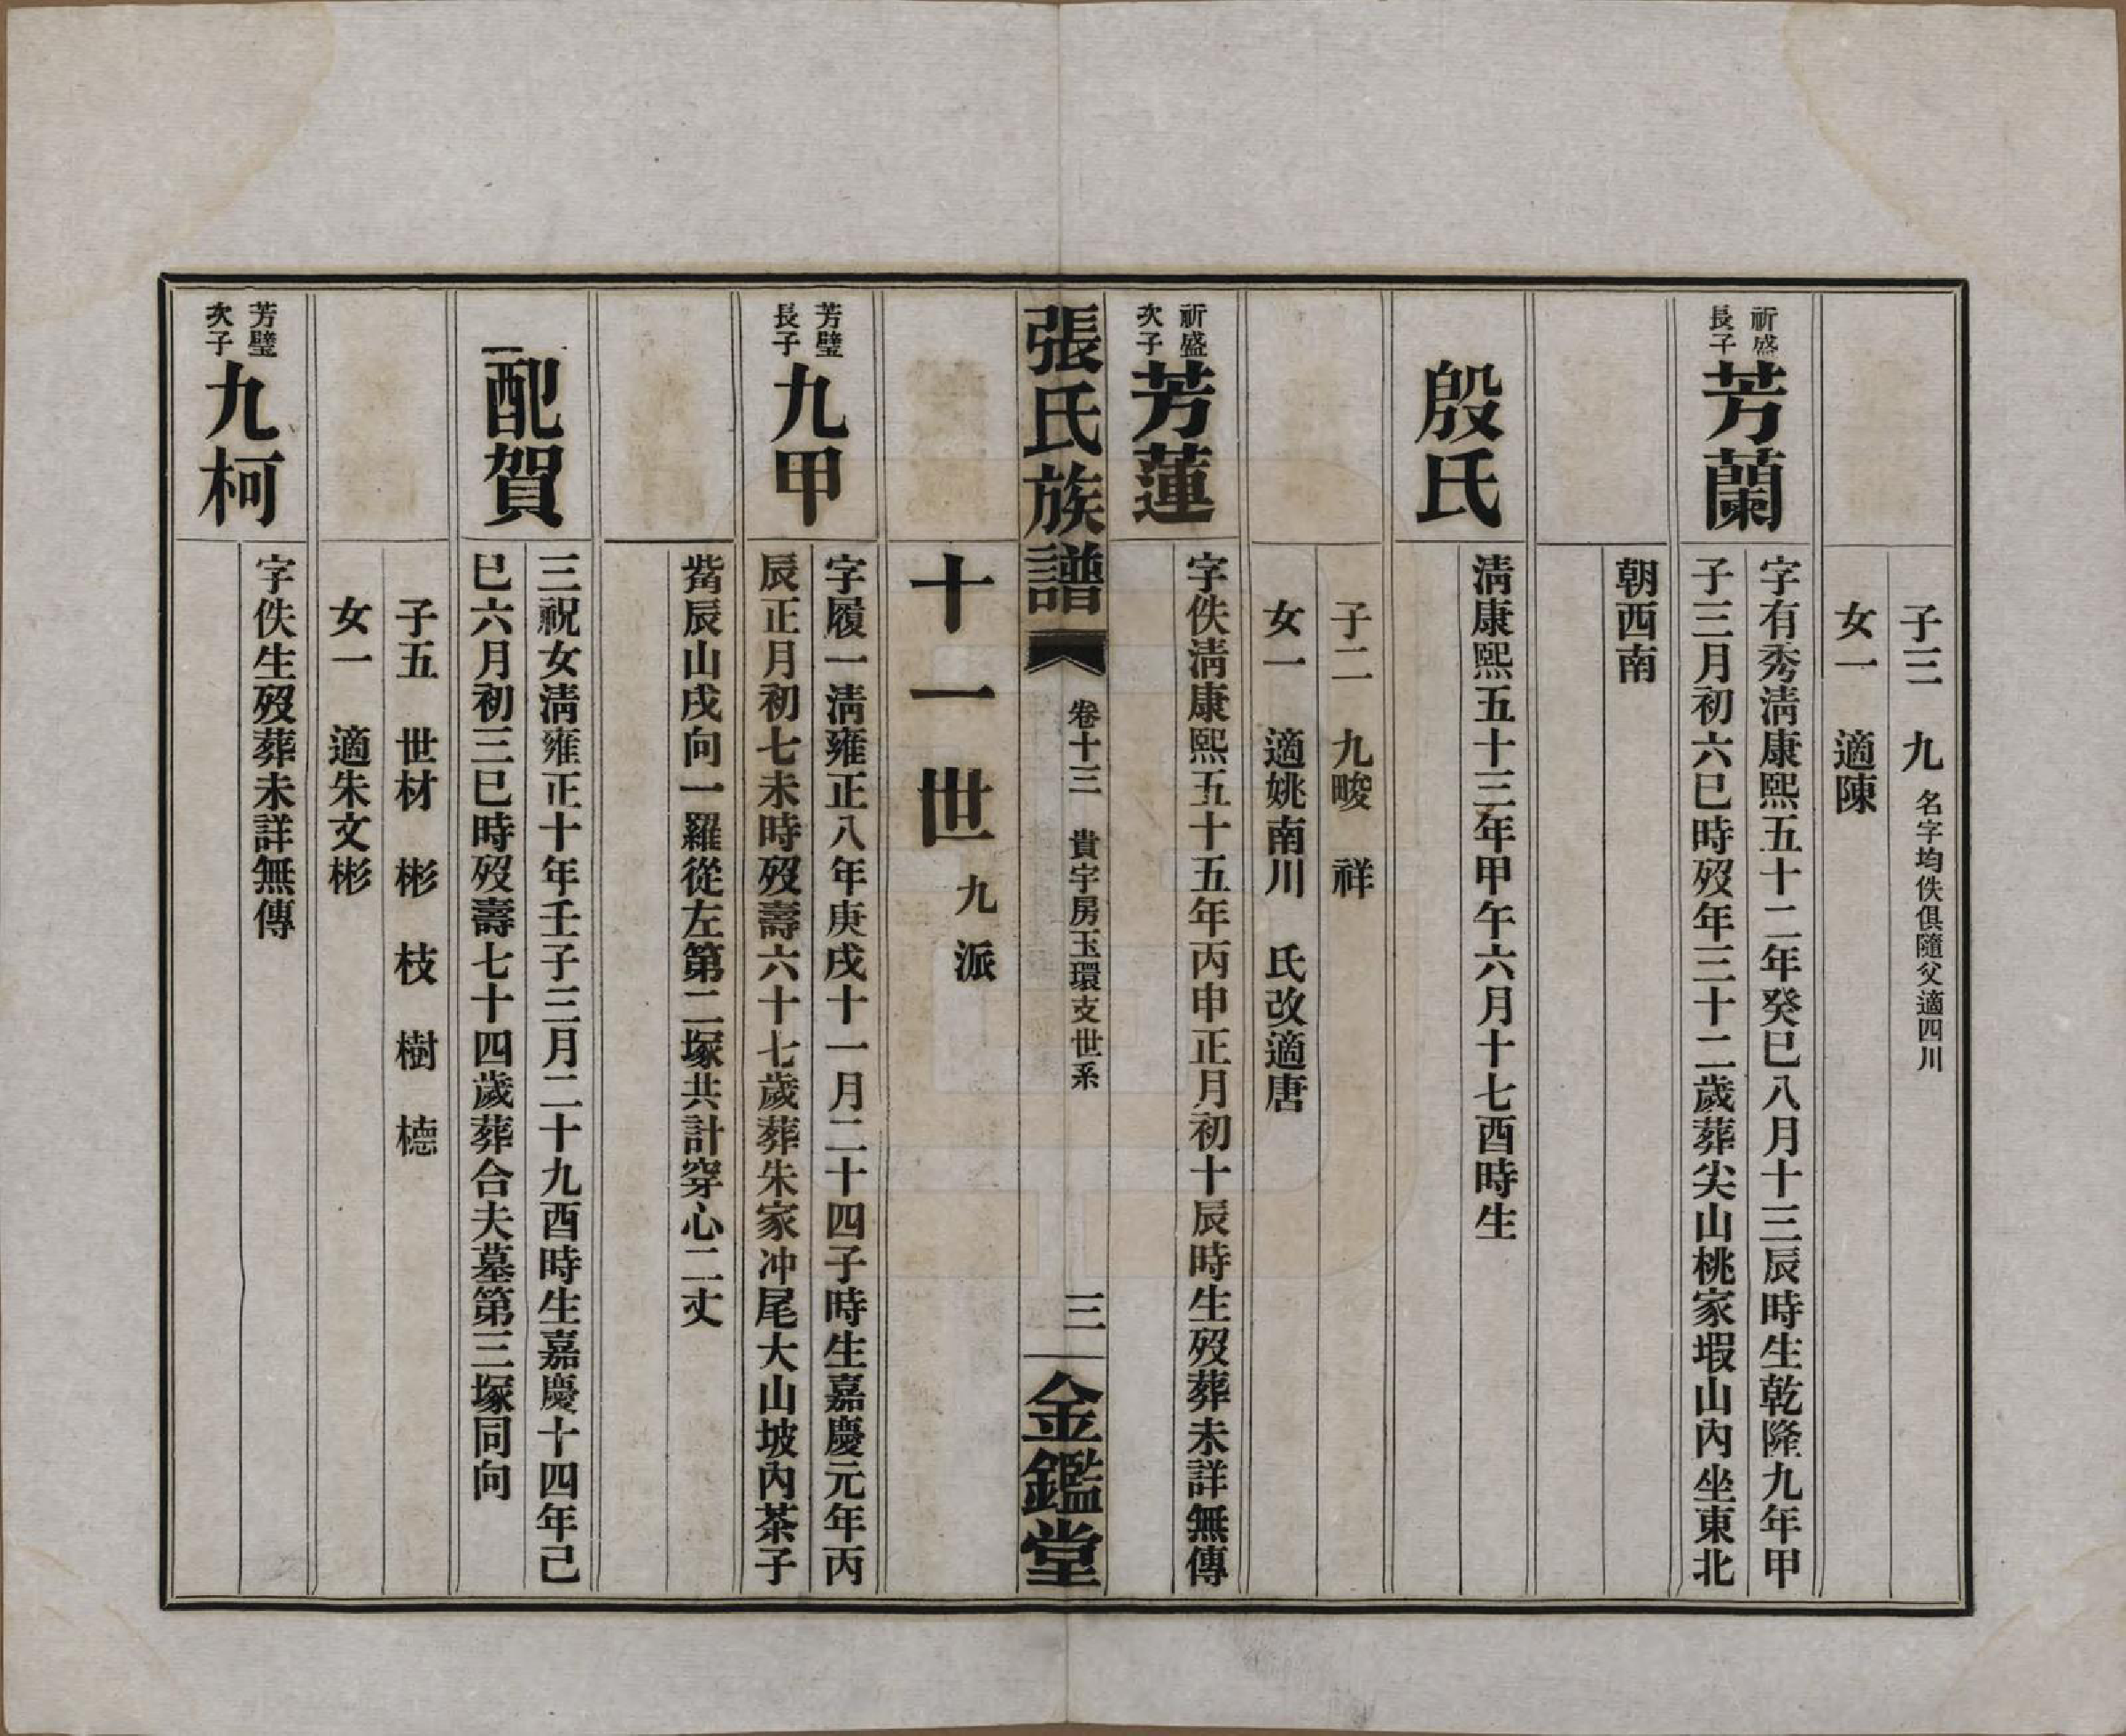 子三　九　名字均佚俱隨父適四川
女一　適陳
祈盛長子
芳蘭
字有秀淸康熙五十二年癸巳八月十三辰時生乾隆九年甲
子三月初六巳時歿年三十二歲葬尖山桃家塅山內坐東北
朝西南
殷氏
淸康熙五十三年甲午六月十七酉時生
子二　九畯　祥
女一　適姚南川　氏改適唐
祈盛次子
芳蓮
字佚淸康熙五十五年丙申正月初十辰時生歿葬未詳無傳
張氏族譜　卷十三　貴宇房玉環支世系　三　金鑑堂
十一世　九派
芳璧長子
九甲
字履一淸雍正八年庚戌十一月二十四子時生嘉慶元年丙
辰正月初七未時歿壽六十七歲葬朱家冲尾大山坡內茶子
嵛辰山戌向一羅從左第二塚共計穿心二丈
配賀
三祝女淸雍正十年壬子三月二十九酉時生嘉慶十四年己
巳六月初三巳時歿壽七十四歲葬合夫墓第三塚同向
子五　世材　彬　枝　樹　橞
女一　適朱文彬
芳璧次子
九柯
字佚生歿葬未詳無傳